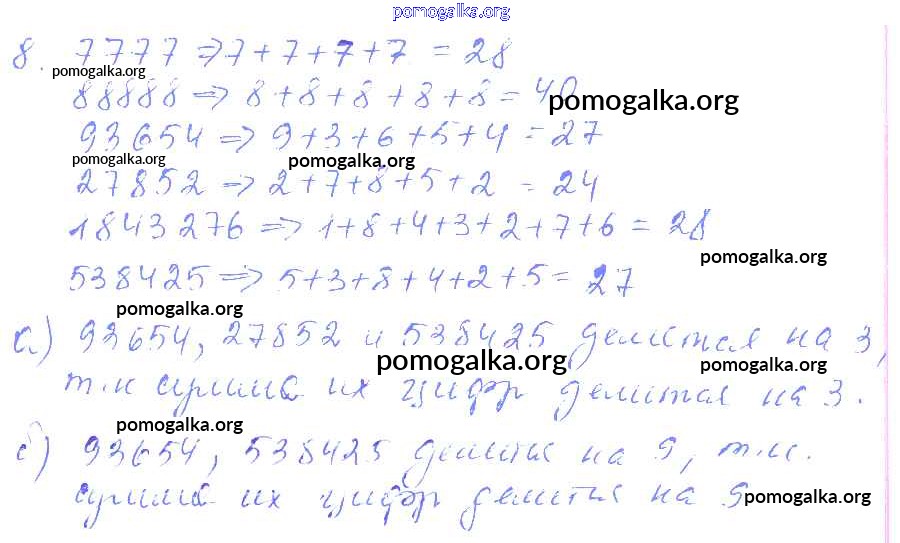 pomogalka.org
8. 7777 => 7+7+7+7 = 28
pomogalka.org
88888 => 8+8+8+8+8 = 40
pomogalka.org
93654 => 9+3+6+5+4 = 27
pomogalka.org
pomogalka.org
27852 => 2+7+8+5+2 = 24
1843276 => 1+8+4+3+2+7+6 = 28
pomogalka.org
538425 => 5+3+8+4+2+5 = 27
pomogalka.org
а) 93654, 27852 и 538425 делится на 3,
pomogalka.org
pomogalka.org
т.к сумма их цифр делится на 3.
pomogalka.org
б) 93654, 538425 делится на 9, т.к.
сумма их цифр делится на 9
pomogalka.org